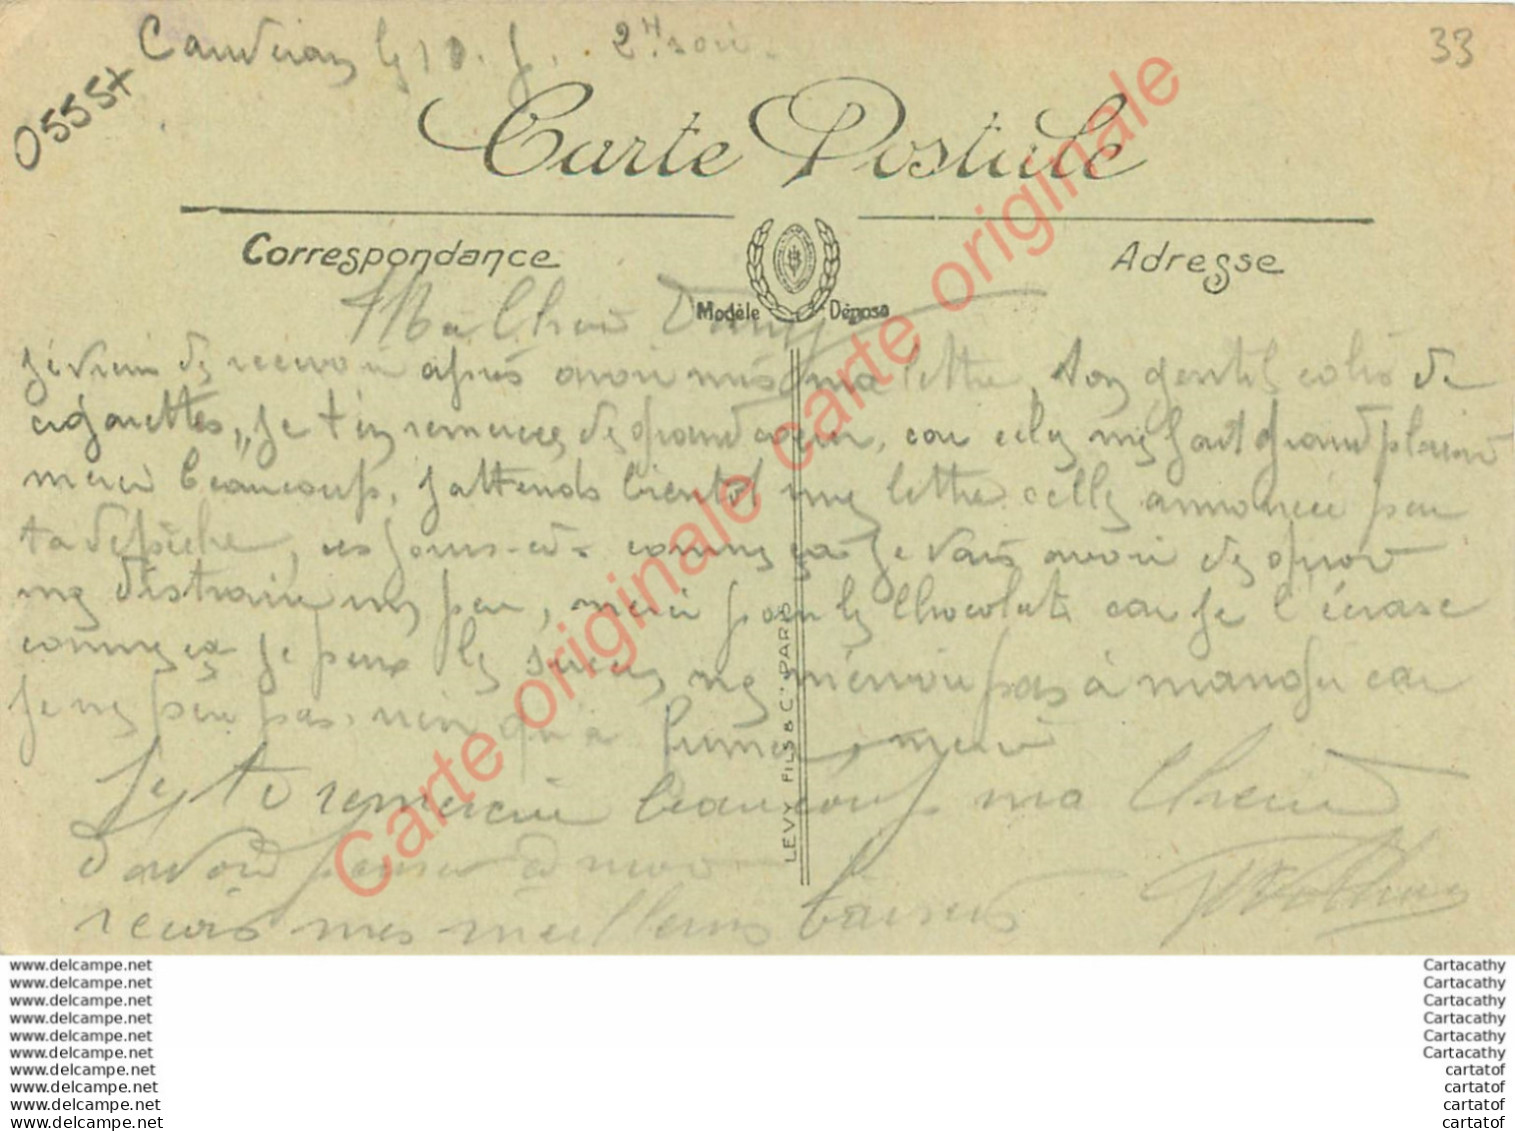 Caudéran le 10. J. 2H soir.
33
05554
Carte Postale
Correspondance
Adresse
Modèle Déposé
Ma Chère
je viens de recevoir après avoir mis ma lettre, ton gentil colis de
cigarettes, je t'en remercie de grand coeur, car cela me fait grand plaisir
merci beaucoup, j'attends bientôt ma lettre celle annoncée par
ta dépêche, ces jours-ci comme ça je vais avoir de quoi
me distraire un peu, merci pour le chocolat car je l'écrase
comme ça je peux le sucer, ne m'envoie pas à manger car
je ne peu pas. rien qu'à fumer, merci
Je te remercie beaucoup ma Chérie
d'avoir pensé à moi
reçois mes meilleurs baisers
LEVY FILS & Cie PARIS
Carte originale carte originale Carte originale carte originale
www.delcampe.net
www.delcampe.net
www.delcampe.net
www.delcampe.net
www.delcampe.net
www.delcampe.net
www.delcampe.net
www.delcampe.net
www.delcampe.net
www.delcampe.net
Cartacathy
Cartacathy
Cartacathy
Cartacathy
Cartacathy
Cartacathy
cartatof
cartatof
cartatof
cartatof